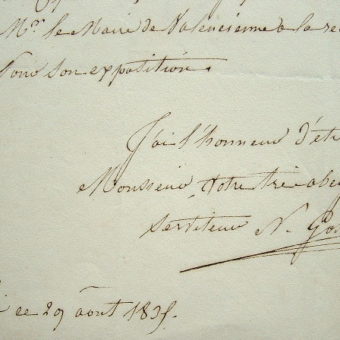 Mr. le Maire de Valencienne a la
Pour son exposition.
J'ai l'honneur d'être
Monsieur votre très obei
serviteur N. Go
ce 29 août 183